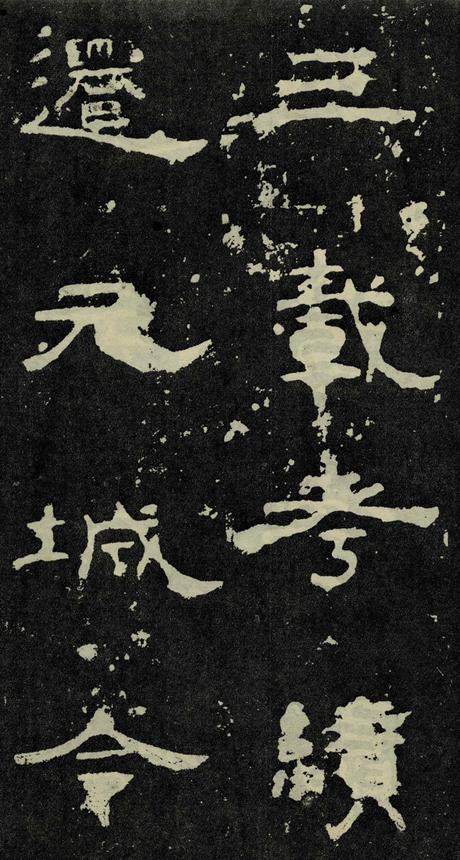 三載考績
遷元城令